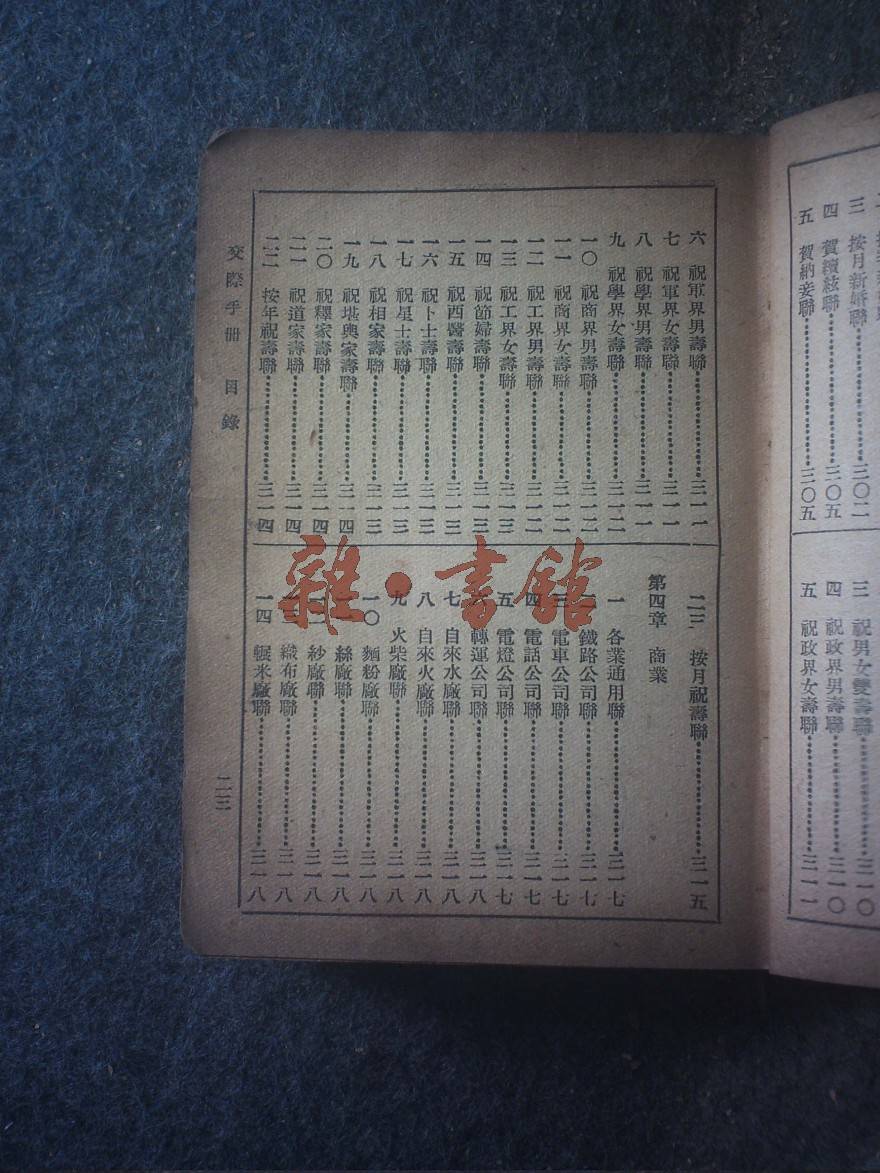 三 按月新婚聯……三〇二
四 賀續絃聯……三〇五
五 賀納妾聯……三〇五
三 祝男女雙壽聯……三一〇
四 祝政界男壽聯……三一〇
五 祝政界女壽聯……三一一
六 祝軍界男壽聯……三一一
七 祝軍界女壽聯……三一一
八 祝學界男壽聯……三一一
九 祝學界女壽聯……三一二
一〇 祝商界男壽聯……三一二
一一 祝商界女壽聯……三一二
一二 祝工界男壽聯……三一二
一三 祝工界女壽聯……三一三
一四 祝節婦壽聯……三一三
一五 祝西醫壽聯……三一三
一六 祝卜士壽聯……三一三
一七 祝星士壽聯……三一三
一八 祝相家壽聯……三一三
一九 祝堪輿家壽聯……三一四
二〇 祝釋家壽聯……三一四
二一 祝道家壽聯……三一四
二二 按年祝壽聯……三一四
二三 按月祝壽聯……三一五
第四章 商業
一 各業通用聯……三一七
二 鐵路公司聯……三一七
三 電車公司聯……三一七
四 電話公司聯……三一七
五 電燈公司聯……三一七
六 轉運公司聯……三一八
七 自來水廠聯……三一八
八 自來火廠聯……三一八
九 火柴廠聯……三一八
一〇 麵粉廠聯……三一八
一一 絲廠聯……三一八
一二 紗廠聯……三一八
一三 織布廠聯……三一八
一四 輾米廠聯……三一八
交際手冊 目錄
二三
雜·書館